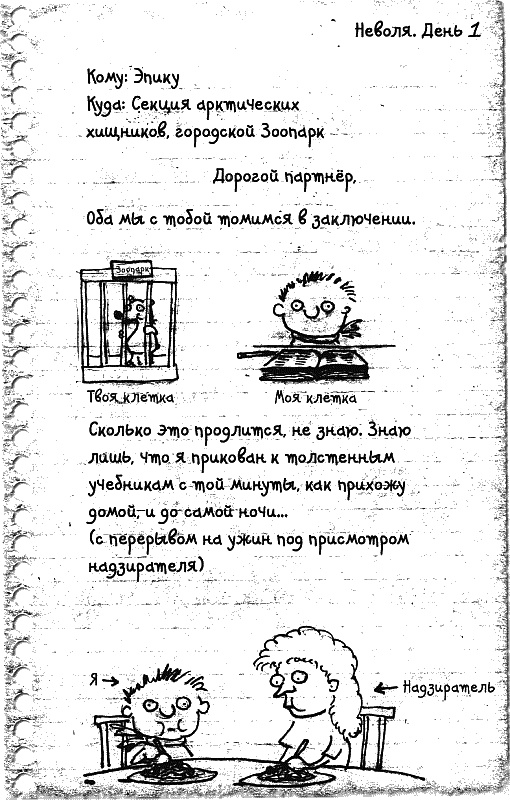 Неволя. День 1
Кому: Эпику
Куда: Секция арктических
хищников, городской Зоопарк
Дорогой партнёр,
Оба мы с тобой томимся в заключении.
Зоопарк
Твоя клетка
Моя клетка
Сколько это продлится, не знаю. Знаю
лишь, что я прикован к толстенным
учебникам с той минуты, как прихожу
домой, и до самой ночи...
(с перерывом на ужин под присмотром
надзирателя)
Я
Надзиратель